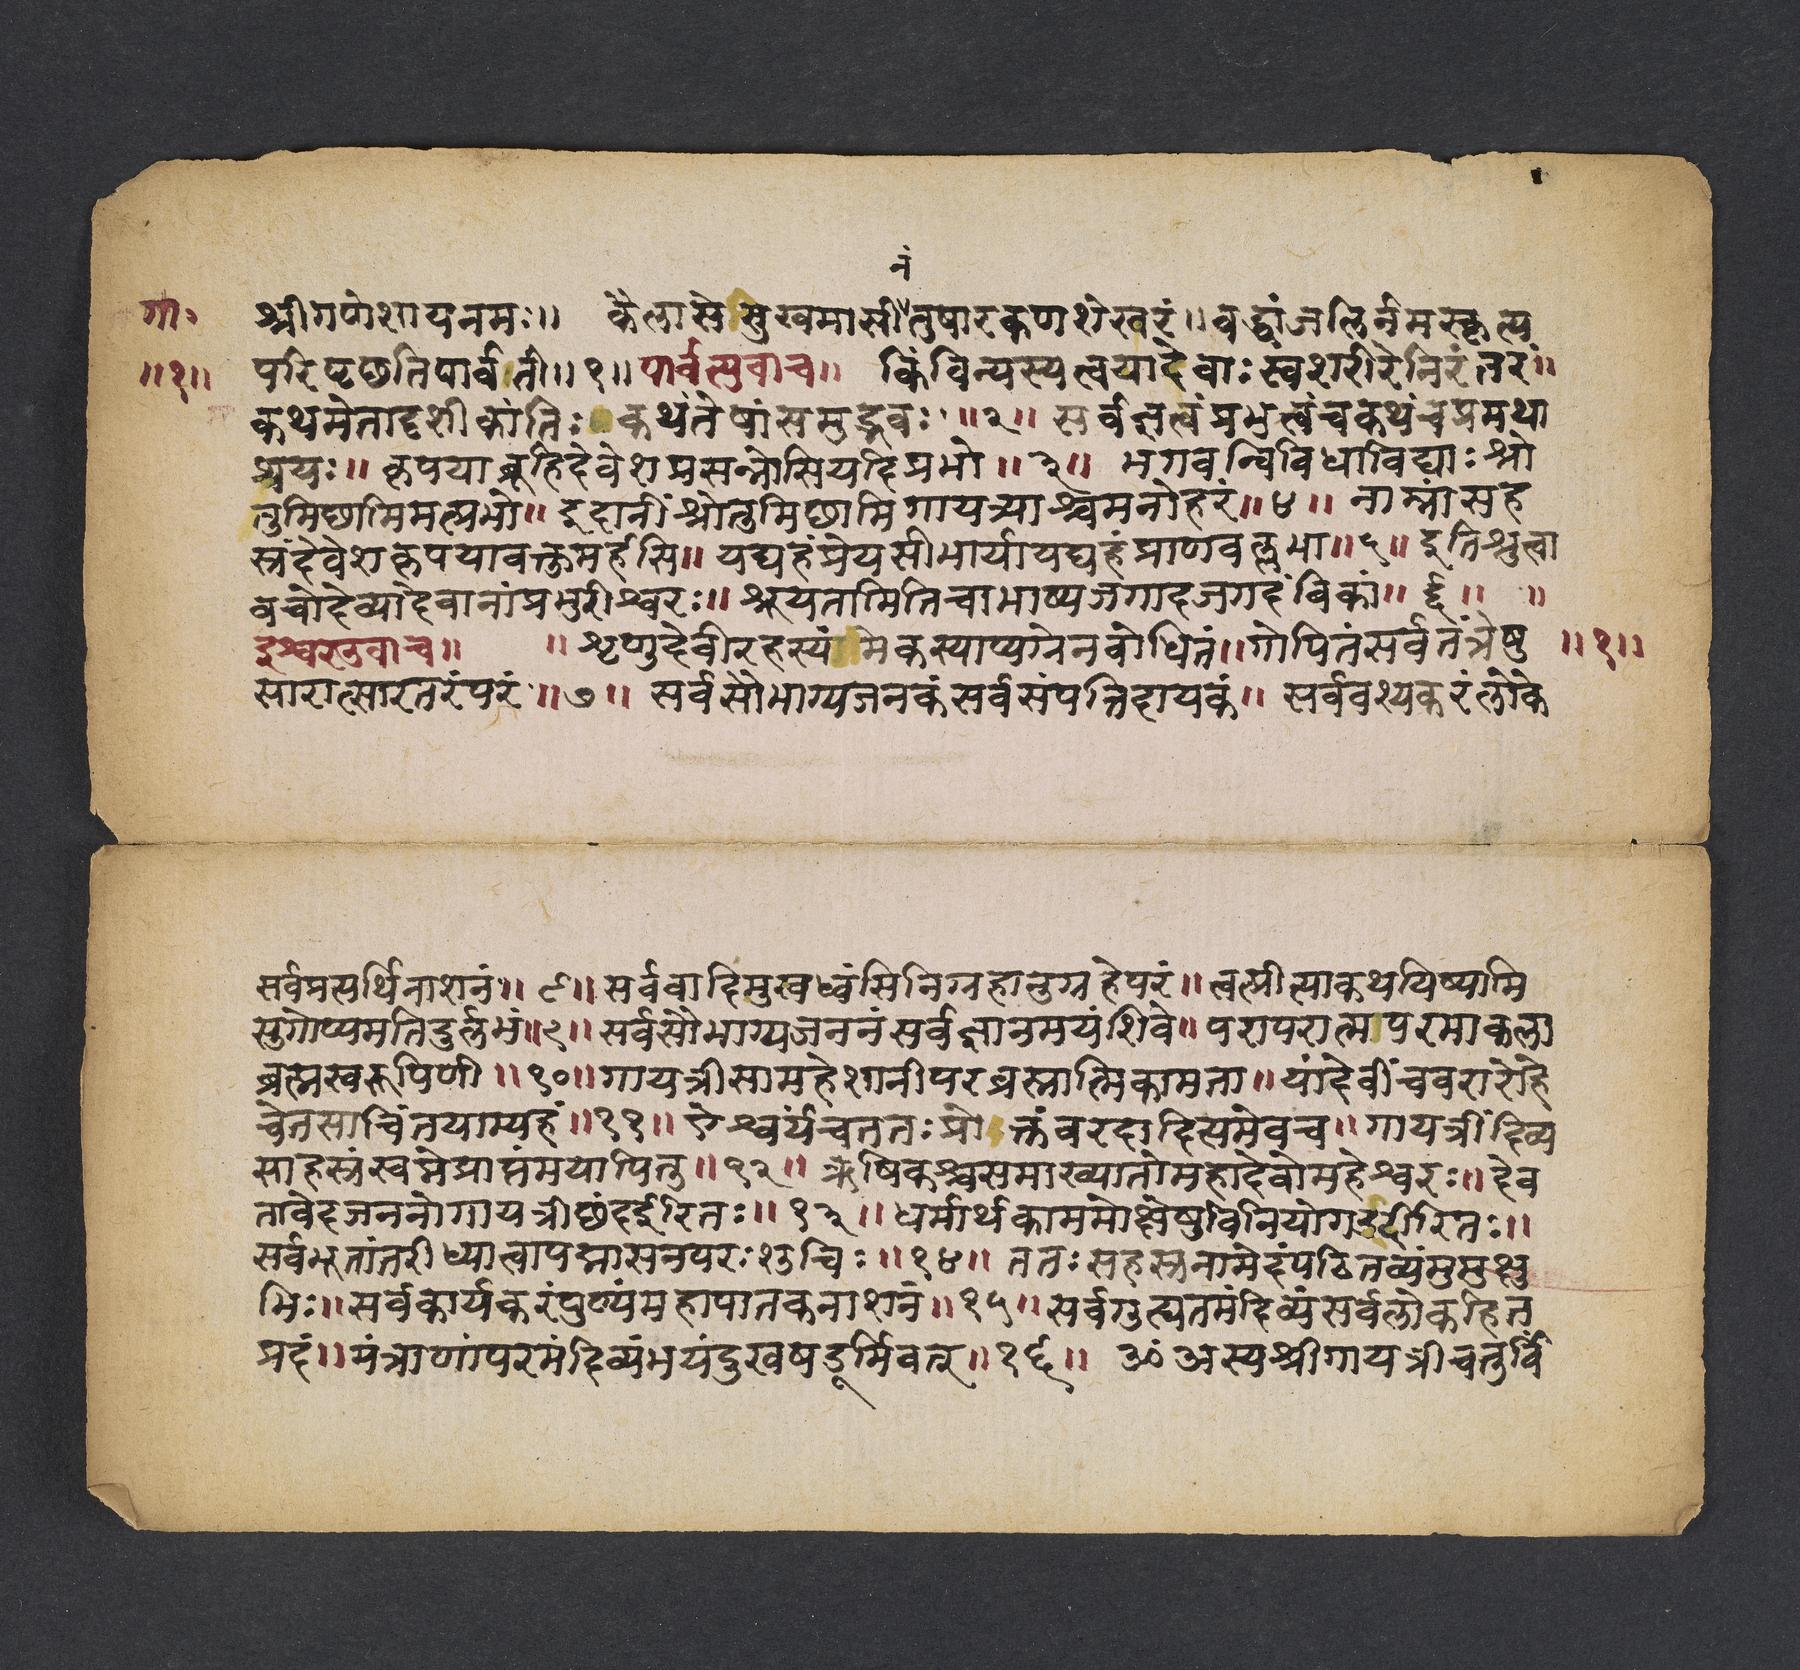 नं
गा॰ श्रीगणेशायनमः॥ कैलासेसुखमासी"तुषारकणशेखरं॥बद्धांजलिर्नमस्कृत्य
॥१॥ परिपृछतिपार्वती॥१॥पार्वत्युवाच॥ किंविन्यस्यत्वयादेवाःस्वशरीरेनिरंतरं॥
कथमेतादृशीकांतिःकथंतेषांसमुद्भवः॥२॥ सर्वज्ञत्वंप्रभुत्वंचकथंचप्रमथा
श्रयः॥ कृपयाब्रूहिदेवेशप्रसन्नोसियदिप्रभो॥३॥ भगवन्विविधाविद्याःश्रो
तुमिछामिमत्प्रभो॥ इदानींश्रोतुमिछामिगायत्र्याश्चमनोहरं॥४॥ नाम्नांसह
स्रंदेवेशकृपयावक्तुमर्हसि॥ यद्यहंप्रेयसीभार्यायद्यहंप्राणवल्लभा॥५॥ इतिश्रुत्वा
वचोदेव्यादेवानांप्रभुरीश्वरः॥ श्रूयतामितिचाभाष्यजगादजगदंबिकां॥६॥ ॥
ईश्वरउवाच॥ ॥शृणुदेवीरहस्यंमेकस्याप्यग्रेनबोधितं॥गोपितंसर्वतंत्रेषु ॥१॥
सारात्सारतरंपरं॥७॥ सर्वसौभाग्यजनकंसर्वसंपत्तिदायकं॥ सर्ववश्यकरंलोके
सर्वप्रत्यर्थिनाशनं॥८॥सर्ववादिमुखध्वंसिनिग्रहानुग्रहेपरं॥त्वत्प्रीत्याकथयिष्यामि
सुगोप्यमतिदुर्लभं॥९॥सर्वसौभाग्यजननंसर्वज्ञानमयंशिवे॥परापरात्मपरमाकला
ब्रह्मस्वरूपिणी॥१०॥गायत्रीसामहेशानीपरब्रह्मात्मिकामता॥यांदेवींचवरारोहे
चेतसाचिंतयाम्यहं॥११॥ऐश्वर्यंचततःप्रोक्तंवरदादित्यमेवच॥गायत्रींदिव्य
साहस्रंस्वप्नेप्राप्तंमयापितु॥१२॥ऋषिकश्चसमाख्यातोमहादेवोमहेश्वरः॥देव
तावेदजननोगायत्रीछंदईरितः॥१३॥धर्मार्थकाममोक्षेषुविनियोगउदीरितः॥
सर्वभूतांतरीध्यात्वापद्मासनपरःशुचिः॥१४॥ततःसहस्रनामेदंपठितव्यंमुमुक्षु
भिः॥सर्वकार्यकरंपुण्यंमहापातकनाशनं॥१५॥सर्वगुह्यतमंदिव्यंसर्वलोकहित
प्रदं॥मंत्राणांपरमंदिव्यंभयंदुखषडूर्मिवत्नृ॥१६॥ ॐअस्यश्रीगायत्रीचतुर्विं